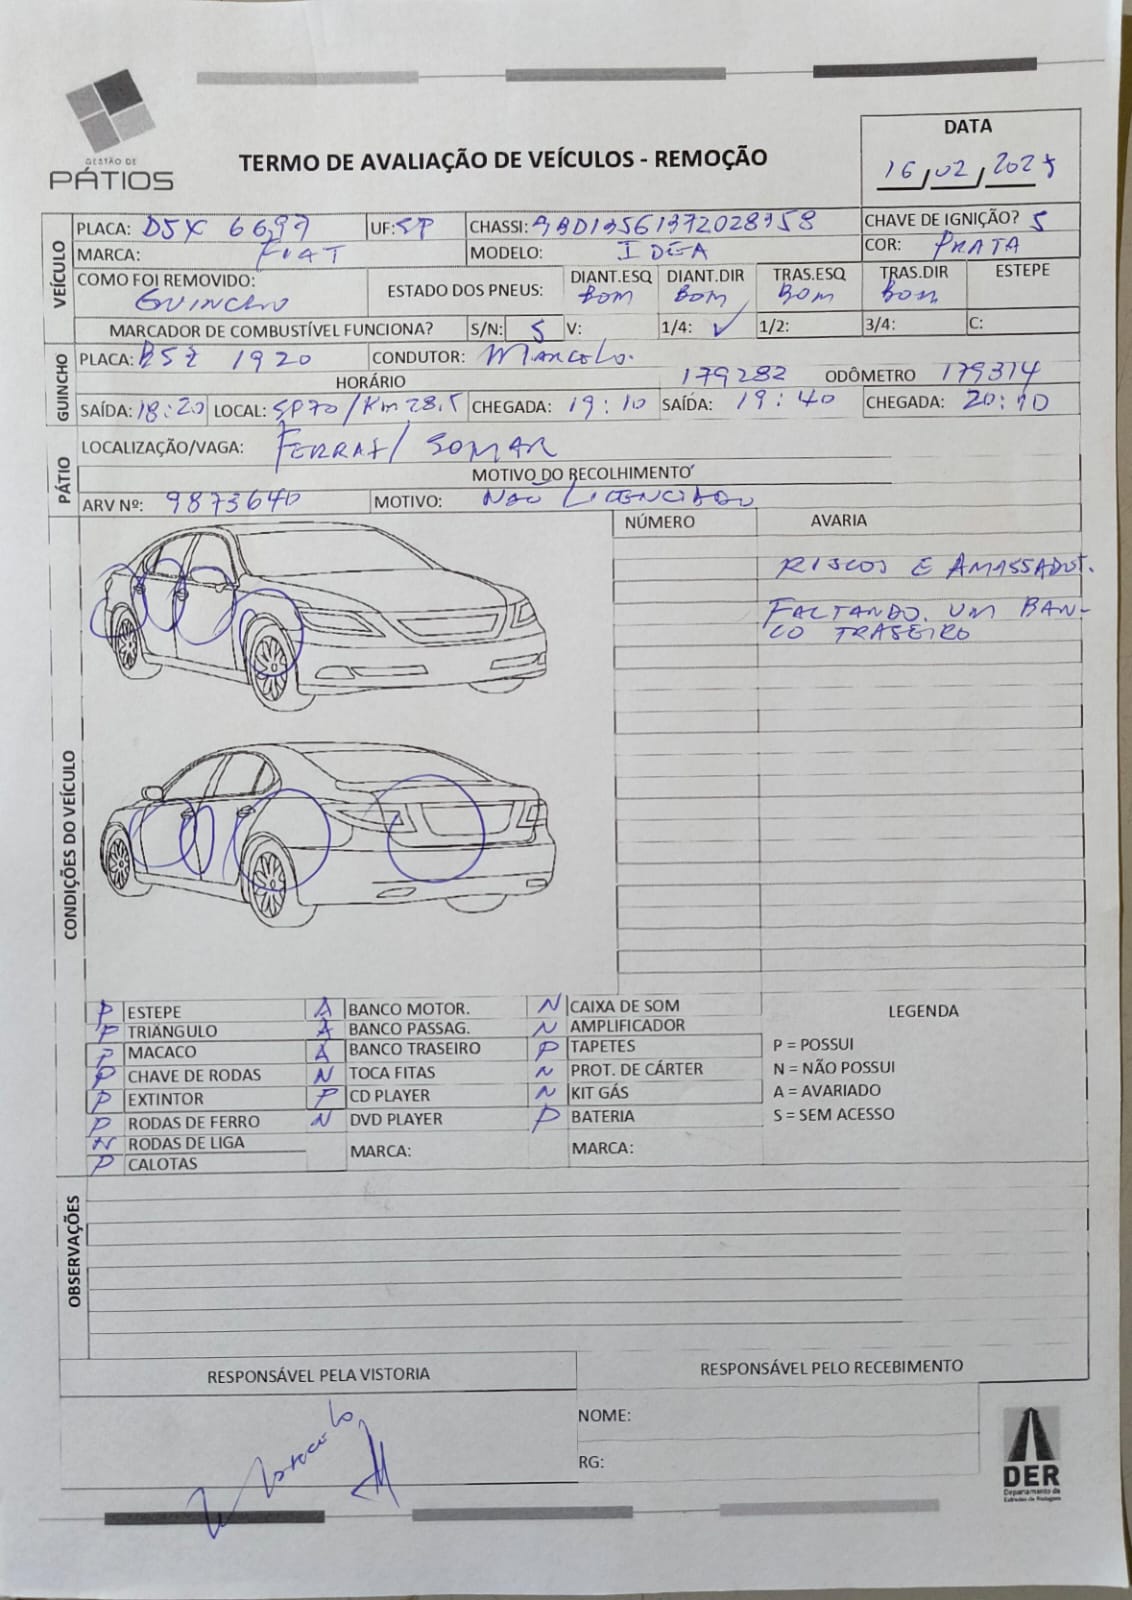 GESTÃO DE
PÁTIOS
TERMO DE AVALIAÇÃO DE VEÍCULOS - REMOÇÃO
DATA
16/02/2025
VEÍCULO
PLACA: DSX 6697 UF: SP CHASSI: 9BD13561372028358 CHAVE DE IGNIÇÃO? S
MARCA: FIAT MODELO: IDEA COR: PRATA
COMO FOI REMOVIDO: GUINCHO
ESTADO DOS PNEUS: DIANT.ESQ BOM DIANT.DIR BOM TRAS.ESQ BOM TRAS.DIR BOM ESTEPE
MARCADOR DE COMBUSTÍVEL FUNCIONA? S/N: S V: 1/4: ✓ 1/2: 3/4: C:
GUINCHO
PLACA: 1920 CONDUTOR: MARCELO.
HORÁRIO 179282 ODÔMETRO 179314
SAÍDA: 18:20 LOCAL: SP70/Km 28.5 CHEGADA: 19:10 SAÍDA: 19:40 CHEGADA: 20:10
PÁTIO
LOCALIZAÇÃO/VAGA: FERRAZ/ SOMAR
MOTIVO DO RECOLHIMENTO
ARV Nº: 9873640 MOTIVO: NÃO LICENCIADO
CONDIÇÕES DO VEÍCULO
NÚMERO AVARIA
RISCOS E AMASSADOS.
FALTANDO UM BAN-
CO TRASEIRO
P ESTEPE A BANCO MOTOR. N CAIXA DE SOM LEGENDA
P TRIÂNGULO A BANCO PASSAG. N AMPLIFICADOR
P MACACO A BANCO TRASEIRO P TAPETES P = POSSUI
P CHAVE DE RODAS N TOCA FITAS N PROT. DE CÁRTER N = NÃO POSSUI
P EXTINTOR P CD PLAYER N KIT GÁS A = AVARIADO
P RODAS DE FERRO N DVD PLAYER P BATERIA S = SEM ACESSO
N RODAS DE LIGA MARCA: MARCA:
P CALOTAS
OBSERVAÇÕES
RESPONSÁVEL PELA VISTORIA RESPONSÁVEL PELO RECEBIMENTO
Marcelo
NOME:
RG:
DER
Departamento de
Estradas de Rodagem